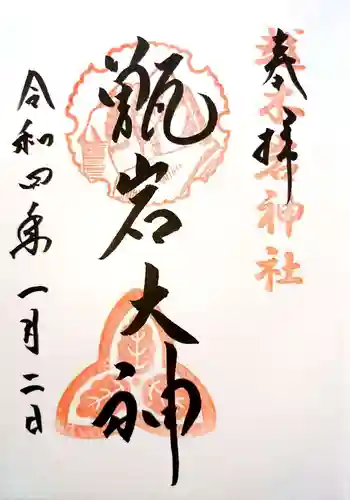 奉拝
神社
甑岩大神
令和四年一月二日